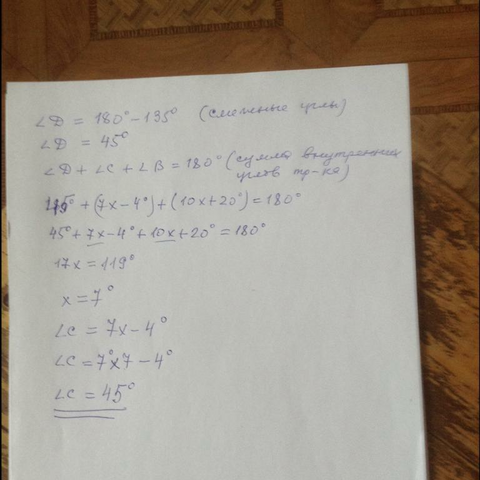 ∠D = 180° - 135° (смежные углы)
∠D = 45°
∠D + ∠C + ∠B = 180° (сумма внутренних
углов тр-ка)
45° + (7x - 4°) + (10x + 20°) = 180°
45° + 7x - 4° + 10x + 20° = 180°
17x = 119°
x = 7°
∠C = 7x - 4°
∠C = 7° x 7 - 4°
∠C = 45°